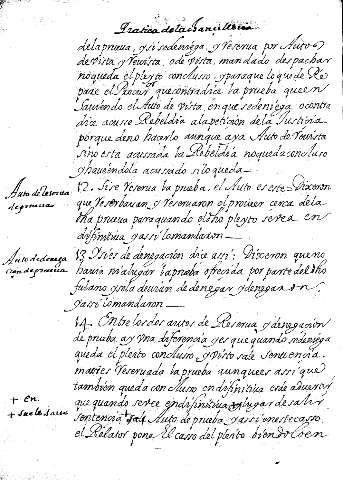 Pratica de la Chancilleria
de la prueua, y si se deniega, y reserua por Auto
de vista y Reuista, o de vista, mandado despachar
no queda el pleyto concluso, y para que lo quede Re
pare el Procur que contradice la prueba que en
hauiendo el Auto de vista, en que se deniega o contra
dice acusse Rebeldia a la peticion de la Justicia
porque de no hacerlo aunque aya Auto de Reuista
sino esta acusada la Rebeldia no queda concluso
y hauiendola acusado si lo queda
Auto de reserua
de prueua
12. Si se reserua la prueba, el Auto es este Dixeron
que reserbauan, y Reseruaron el proueer cerca de la
dha prueua para quando el dho pleyto se vea en
difinitiua y assi lo mandaron
Auto de denega
cion de prueua
13 Y si es de denegacion dice assi: Dixeron que no
hauia lugar la prueba ofrecida por parte del dho
fulano y se la deuian de denegar y denegaron
y assi lo mandaron
14. Entre los dos autos de Reserua y denegacion
de prueba, ay una diferencia y es que quando se deniega
queda el pleito concluso, y visto sale sentencia
mas si es Reseruado la prueba aunque es assi que
tambien queda concluso en difinitiua es de aduertir
+ en
que quando se vee en difinitiua + lugar de salir
+ suele salir
sentencia + Auto de prueba y assi en este casso
el Relator pone El casso del pleito diendo